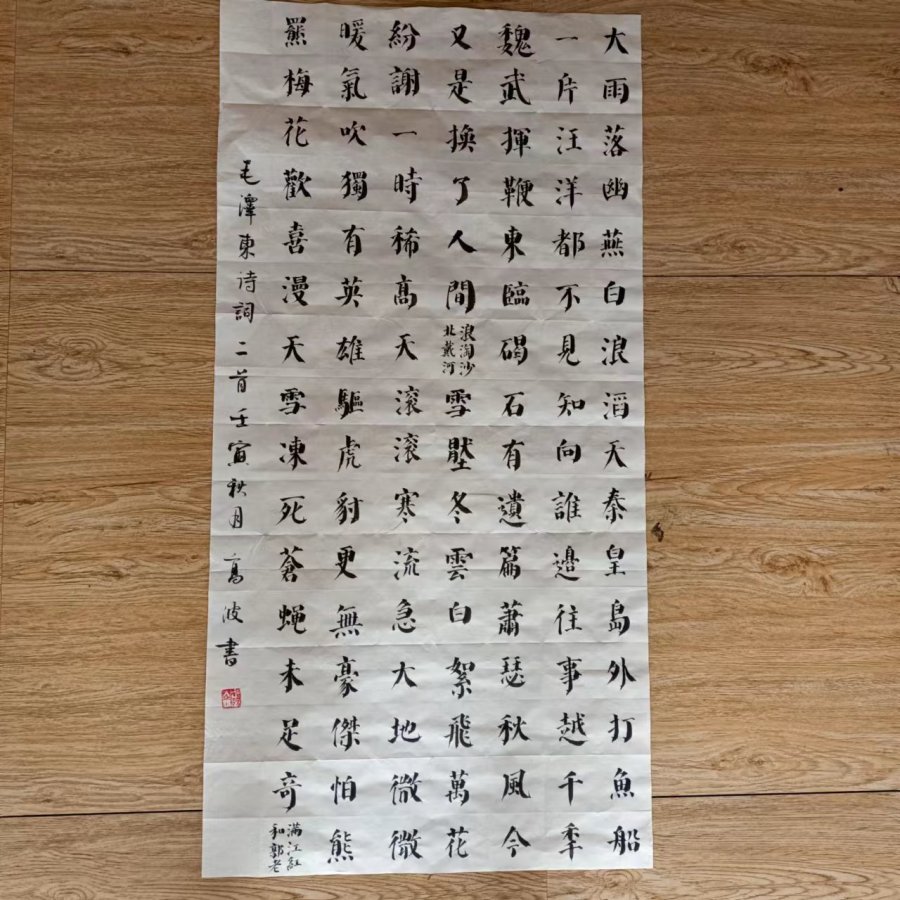 大雨落幽燕白浪滔天秦皇島外打魚船
一片汪洋都不見知向誰邊往事越千秊
魏武揮鞭東臨碣石有遺篇蕭瑟秋風今
又是換了人間
浪淘沙
北戴河
雪壓冬雲白絮飛萬花
紛謝一時稀高天滚滚寒流急大地微微
暖氣吹獨有英雄驅虎豹更無豪傑怕熊
羆梅花歡喜漫天雪凍死蒼蝇未足奇
满江紅
和郭老
毛澤東诗詞二首壬寅秋月高波書